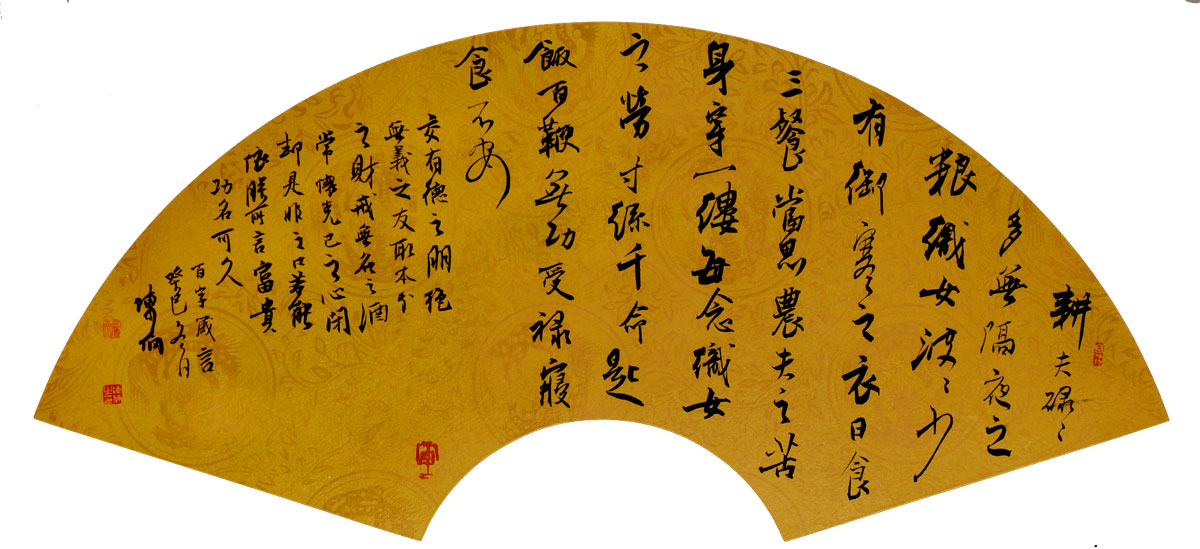 耕夫碌〻
多無隔夜之
粮織女波〻少
有御寒之衣日食
三餐當思農夫之苦
身穿一縷每念織女
之勞寸絲千命匙
飯百鞭無功受禄寢
食不安
交有德之朋絶
無義之友取本分
之財戒無名之酒
常懷克己之心閉
却是非之口若能
依朕所言富貴
功名可久
百字箴言
癸巳冬月
陳